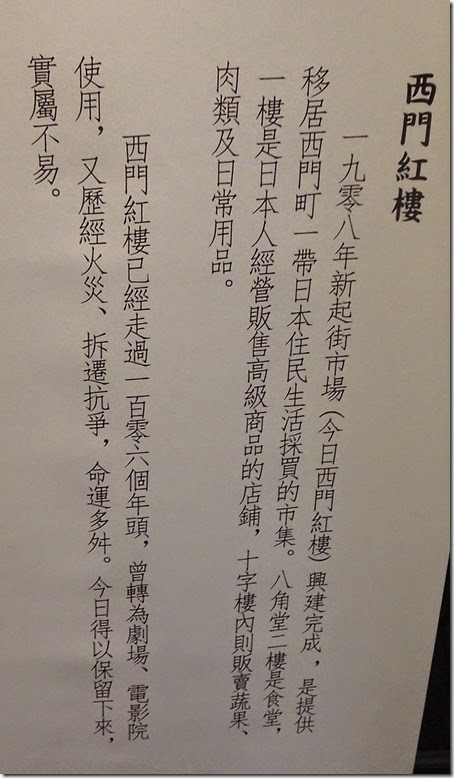 西門紅樓
一九零八年新起街市場(今日西門紅樓)興建完成，是提供
移居西門町一帶日本住民生活採買的市集。八角堂二樓是食堂，
一樓是日本人經營販售高級商品的店鋪，十字樓內則販賣蔬果、
肉類及日常用品。
西門紅樓已經走過一百零六個年頭，曾轉為劇場、電影院
使用，又歷經火災、拆遷抗爭，命運多舛。今日得以保留下來，
實屬不易。